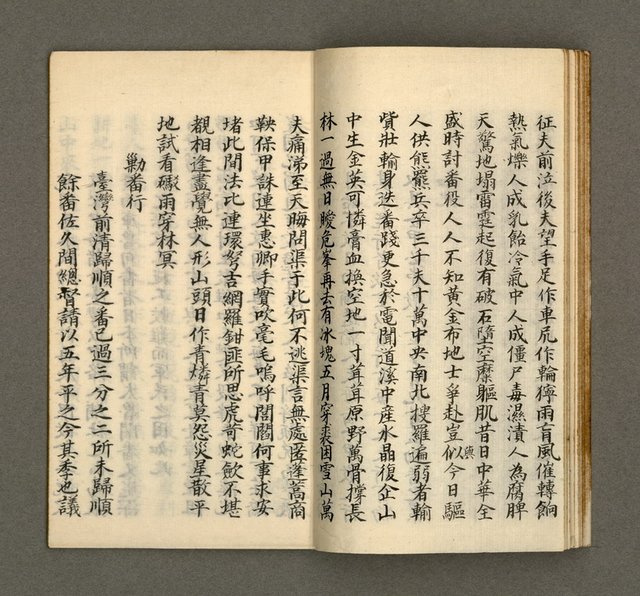 征夫前泣後夫望手足作車尻作輪獰雨盲風催轉餉
熱氣爍人成乳飴冷氣中人成僵尸毒濕漬人為腐脾
天驚地塌雷霆起復有破石墮空靡軀肌昔日中華全
盛時討番役人人不知黃金布地士爭赴豈似今日驅
人供熊羆兵卒三千夫十萬中央南北搜羅遍弱者輸
貲壯輸身迭番踐更急於電聞道溪中産水晶復企山
中生金英可憐膏血換空地一寸茸茸原野萬骨撐長
林一過無日曖危峯再去有冰塊五月穿裘困雪山萬
夫痛涕至天晦問渠于此何不逃渠言無處匿蓬蒿商
鞅保甲誅連坐惠卿手實吹毫毛嗚呼閭閻何事求安
堵此間法比連環弩吉網羅鉗匪所思虎苛蛇歛不堪
覩相逢盡覺無人形山頭日作青燐青莫怨災星散平
地試看礮雨穿林冥
勦番行
臺灣前清歸順之番已過三分之二所未歸順
餘番佐久間總督請以五年平之今其季也議